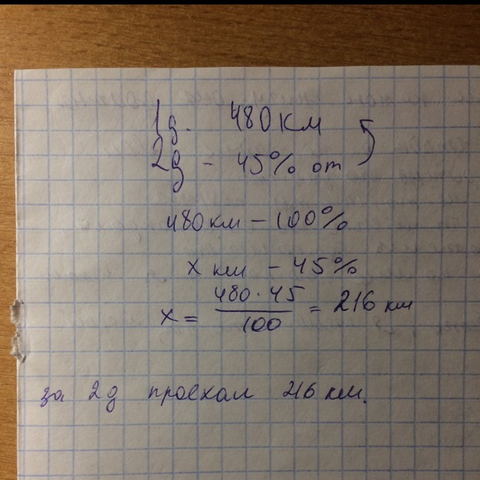 1д. 480 км
2д - 45% от
480 км - 100%
x км - 45%
x = 480·45 / 100 = 216 км
за 2д проехал 216 км.